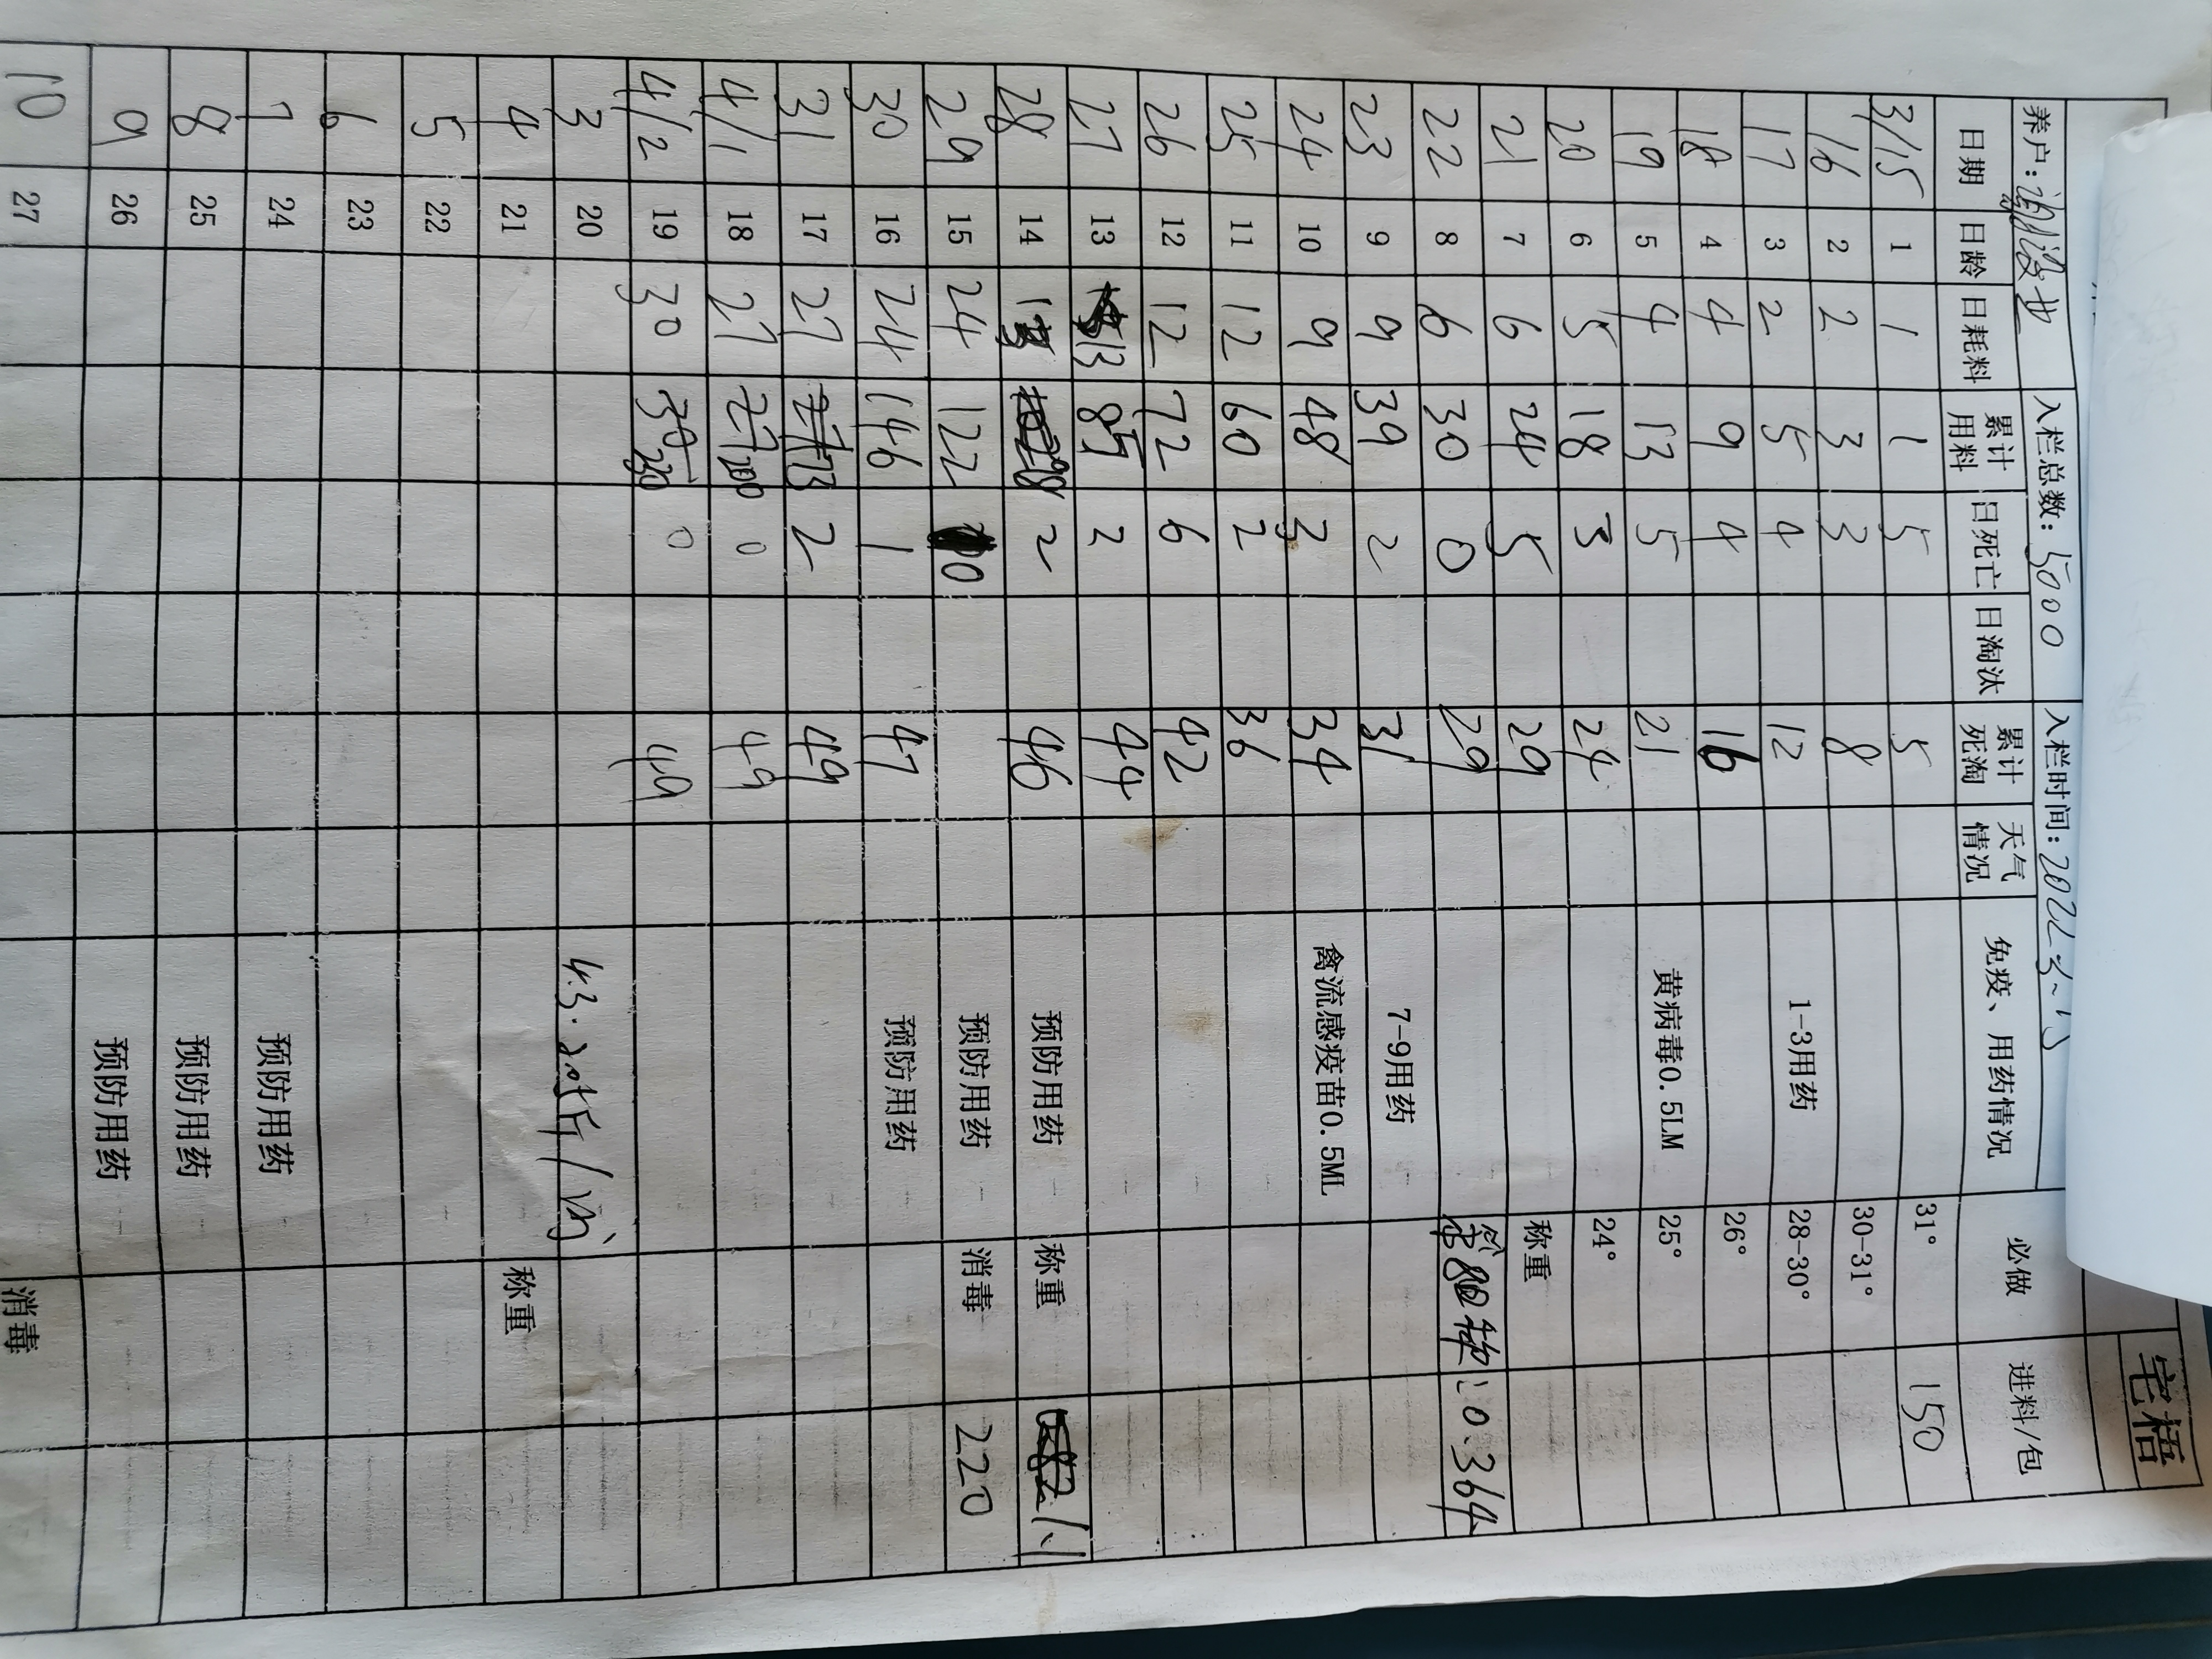 宅梧
养户: 入栏总数: 5000 入栏时间: 2022
日期 日龄 日耗料 累计用料 日死亡 日淘汰 累计死淘 天气情况 免疫、用药情况 必做 进料/包
3/15 1 1 1 5 5 31° 150
16 2 2 3 3 8 30-31°
17 3 2 5 4 12 1-3用药 28-30°
18 4 4 9 4 16 26°
19 5 4 13 5 21 黄病毒0.5LM 25°
20 6 5 18 3 24 24°
21 7 6 24 5 29 称重
22 8 6 30 0 29 0.364
23 9 9 39 2 31 7-9用药
24 10 9 48 3 34 禽流感疫苗0.5ML
25 11 12 60 2 36
26 12 12 72 6 42
27 13 13 85 2 44
28 14 13 98 2 46 预防用药 称重 1.1
29 15 24 122 0 预防用药 消毒 220
30 16 24 146 1 47 预防用药
31 17 27 173 2 49
4/1 18 27 200 0 49
4/2 19 30 230 0 49
3 20
4 21 称重
5 22
6 23
7 24 预防用药
8 25 预防用药
9 26 预防用药
10 27 消毒